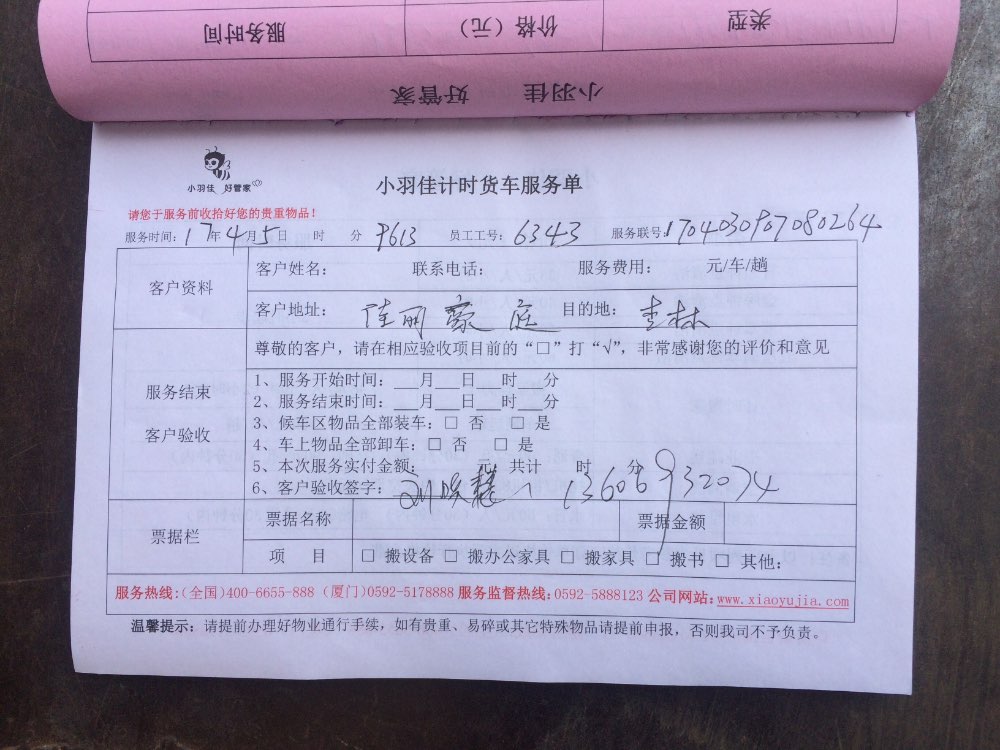 服务时间 价格（元） 类型
小羽佳 好管家
小羽佳 好管家
小羽佳计时货车服务单
请您于服务前收拾好您的贵重物品！
服务时间：17年4月5日 时 分 9613 员工工号：6343 服务联号：1704030907080264
客户资料
客户姓名： 联系电话： 服务费用： 元/车/趟
客户地址：佳丽豪庭 目的地：杏林
尊敬的客户，请在相应验收项目前的“□”打“√”，非常感谢您的评价和意见
服务结束
客户验收
1、服务开始时间：___月___日___时___分
2、服务结束时间：___月___日___时___分
3、候车区物品全部装车：□ 否 □ 是
4、车上物品全部卸车：□ 否 □ 是
5、本次服务实付金额： 元 共计 时 分
6、客户验收签字： 13606932074
票据栏
票据名称 票据金额
项 目 □ 搬设备 □ 搬办公家具 □ 搬家具 □ 搬书 □ 其他：
服务热线：(全国)400-6655-888 (厦门)0592-5178888 服务监督热线：0592-5888123 公司网站：www.xiaoyujia.com
温馨提示：请提前办理好物业通行手续，如有贵重、易碎或其它特殊物品请提前申报，否则我司不予负责。